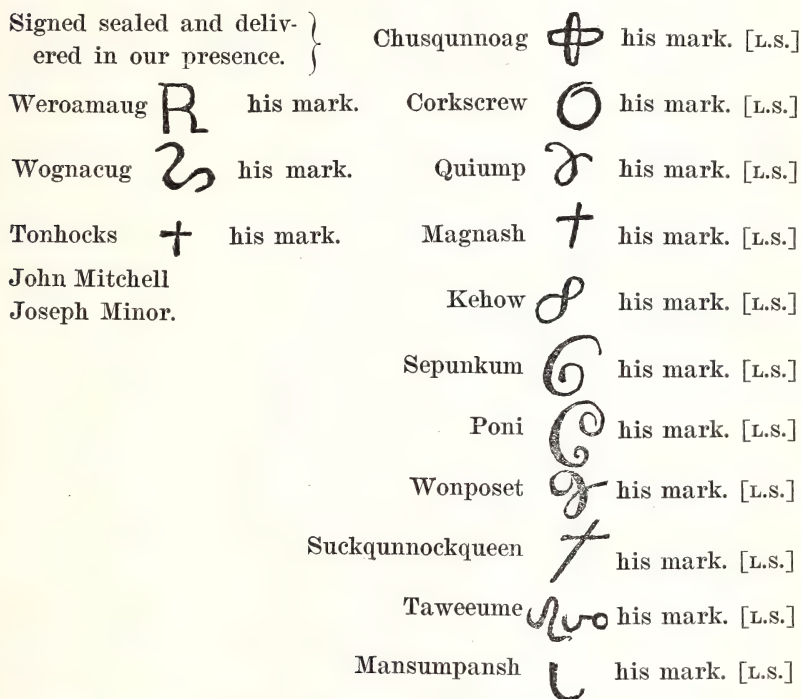 Signed sealed and deliv-
ered in our presence.
Weroamaug R his mark.
Wognacug his mark.
Tonhocks his mark.
John Mitchell
Joseph Minor.
Chusqunnoag his mark. [L.S.]
Corkscrew his mark. [L.S.]
Quiump his mark. [L.S.]
Magnash his mark. [L.S.]
Kehow his mark. [L.S.]
Sepunkum his mark. [L.S.]
Poni his mark. [L.S.]
Wonposet his mark. [L.S.]
Suckqunnockqueen his mark. [L.S.]
Taweeume his mark. [L.S.]
Mansumpansh his mark. [L.S.]